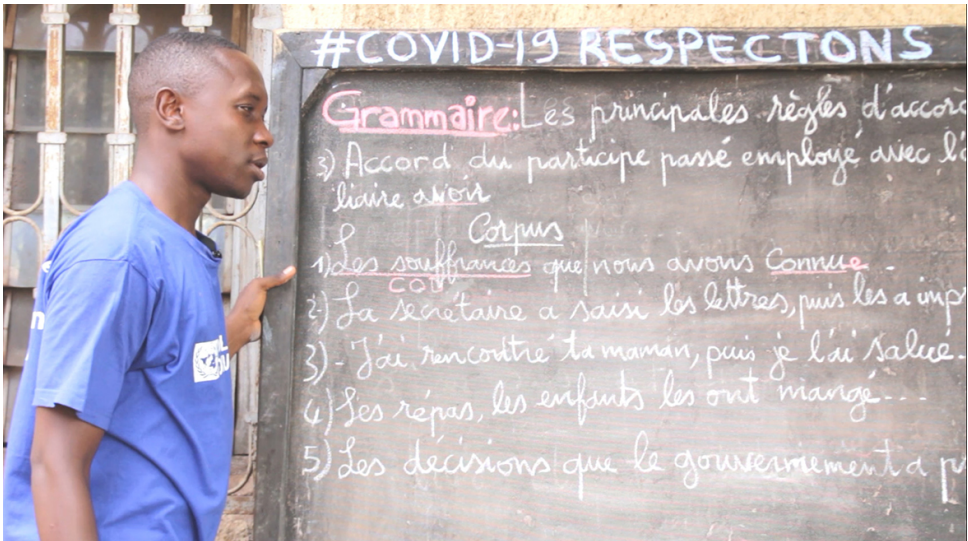 #COVID-19 RESPECTONS
Grammaire: Les principales règles d'accor
3) Accord du participe passé employé avec l'a
liaire avoir
Corpus
1) Les souffrances que nous avons Connue
COD
2) La secrétaire a saisi les lettres, puis les a imp
3) - J'ai rencontré ta maman, puis je l'ai salué.
4) Les répas, les enfants les ont mangé...
5) Les décisions que le gouvernement a p